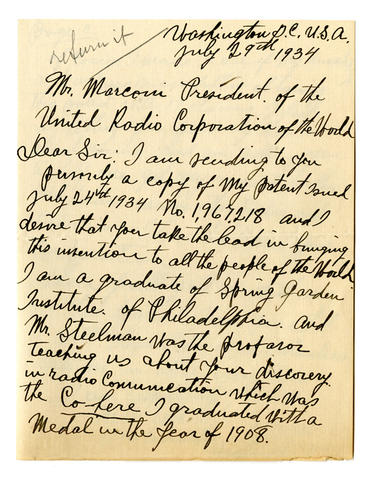 return it
Washington D.C. U.S.A.
July 29th 1934
Mr. Marconi President. of the
United Radio Corporation of the World
Dear Sir: I am sending to you
personly a copy of My patent issued
July 24th 1934 No. 1,967,218 and I
desire that you take the lead in bringing
this invention to all the people of the World
I am a graduate of Spring Garden
Institute. of Philadelphia. and
Mr. Steelman was the profasor
teaching us about your discovery.
in radio Communication which was
the Co-here I graduated with a
Medal in the Year of 1908.